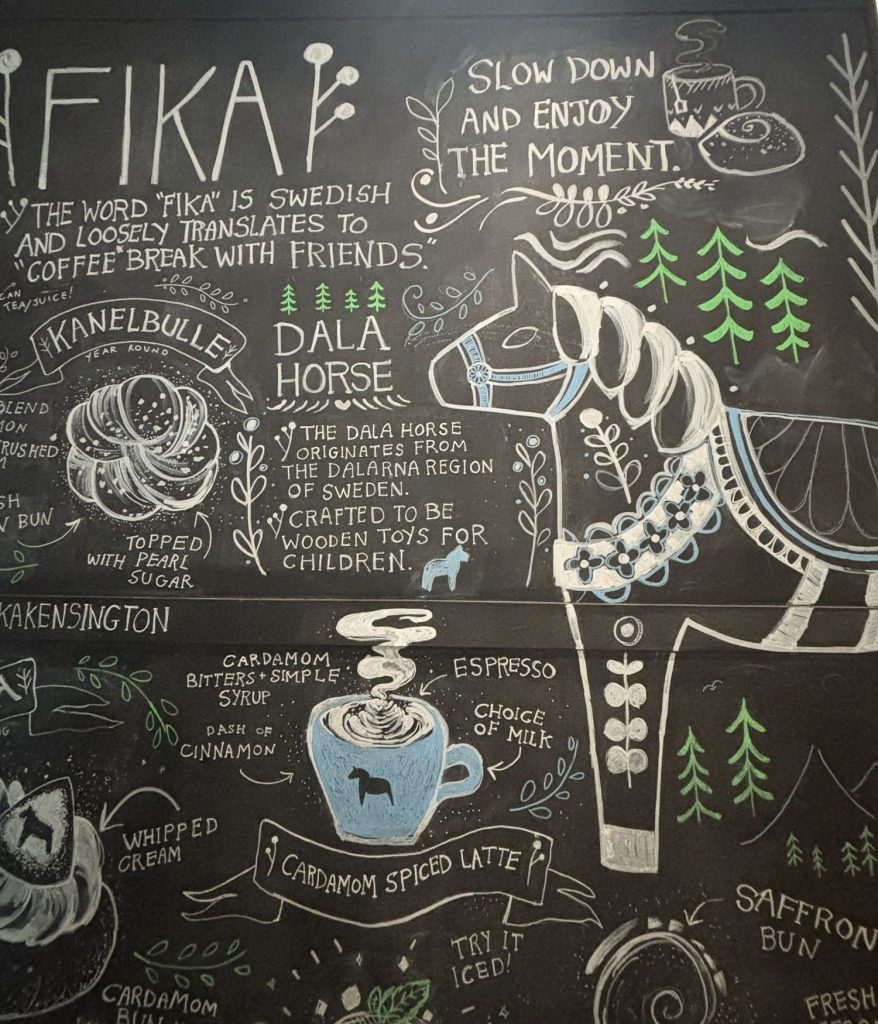 FIKA
SLOW DOWN
AND ENJOY
THE MOMENT.
THE WORD "FIKA" IS SWEDISH
AND LOOSELY TRANSLATES TO
"COFFEE* BREAK WITH FRIENDS."
CAN
TEA/JUICE!
KANELBULLE
YEAR ROUND
BLEND
TOPPED
WITH PEARL
SUGAR
BUN
DALA
HORSE
THE DALA HORSE
ORIGINATES FROM
THE DALARNA REGION
OF SWEDEN.
CRAFTED TO BE
WOODEN TOYS FOR
CHILDREN.
KAKENSINGTON
CARDAMOM
BITTERS + SIMPLE
SYRUP
DASH OF
CINNAMON
ESPRESSO
CHOICE
OF MILK
CARDAMOM SPICED LATTE
WHIPPED
CREAM
TRY IT
ICED!
CARDAMOM
BUN
SAFFRON
BUN
FRESH